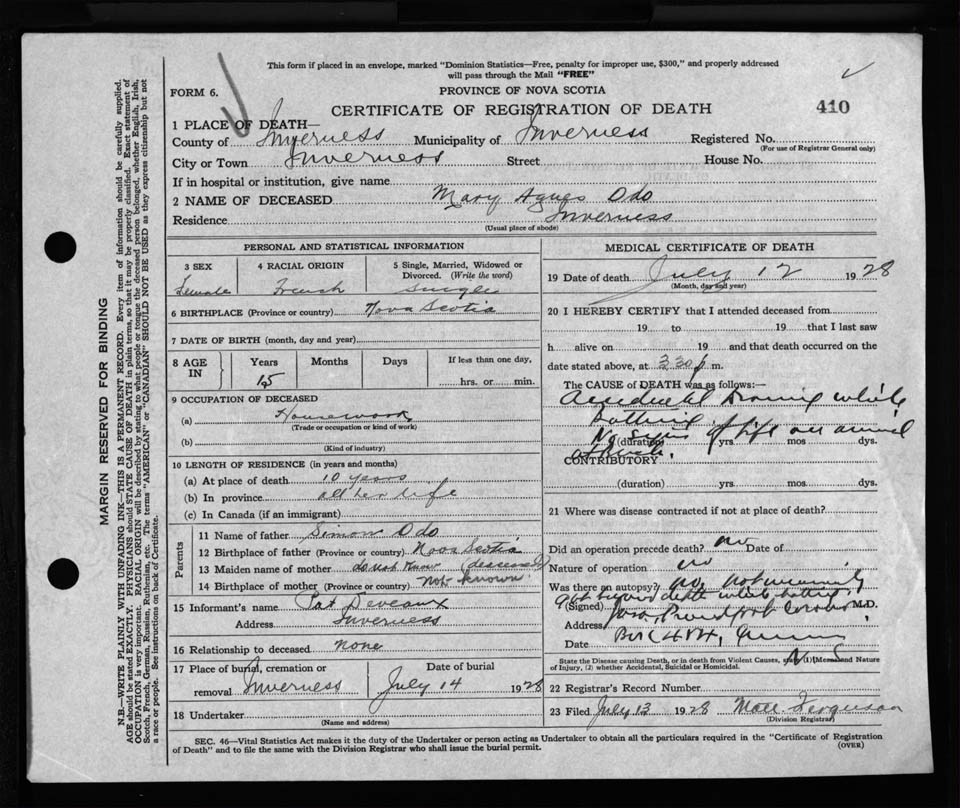 This form if placed in an envelope, marked "Dominion Statistics—Free, penalty for improper use, $300," and properly addressed
will pass through the Mail "FREE"
FORM 6.
PROVINCE OF NOVA SCOTIA
CERTIFICATE OF REGISTRATION OF DEATH
410
1 PLACE OF DEATH—
County of Inverness Municipality of Inverness Registered No.
(For use of Registrar General only)
City or Town Inverness Street House No.
If in hospital or institution, give name
2 NAME OF DECEASED Mary Agnes Odo
Residence Inverness
(Usual place of abode)
PERSONAL AND STATISTICAL INFORMATION
3 SEX 4 RACIAL ORIGIN 5 Single, Married, Widowed or
Divorced. (Write the word)
Female French Single
6 BIRTHPLACE (Province or country) Nova Scotia
7 DATE OF BIRTH (month, day and year)
8 AGE IN Years Months Days If less than one day,
15 hrs. or min.
9 OCCUPATION OF DECEASED
(a) Housework
(Trade or occupation or kind of work)
(b)
(Kind of industry)
10 LENGTH OF RESIDENCE (in years and months)
(a) At place of death 10 years
(b) In province all her life
(c) In Canada (if an immigrant)
Parents
11 Name of father Simon Odo
12 Birthplace of father (Province or country) Nova Scotia
13 Maiden name of mother do not know (deceased)
14 Birthplace of mother (Province or country) not known
15 Informant's name Pat Deveaux
Address Inverness
16 Relationship to deceased none
17 Place of burial, cremation or Date of burial
removal Inverness July 14 1928
18 Undertaker
(Name and address)
MEDICAL CERTIFICATE OF DEATH
19 Date of death July 12 1928
(Month, day and year)
20 I HEREBY CERTIFY that I attended deceased from
19 to 19 that I last saw
h alive on 19 and that death occurred on the
date stated above, at 3 30 p m.
The CAUSE of DEATH was as follows:—
Accidental Drowning while
bathing
No signs of life on arrival
(duration) yrs. mos. dys.
CONTRIBUTORY
(duration) yrs. mos. dys.
21 Where was disease contracted if not at place of death?
Did an operation precede death? no Date of
Nature of operation no
Was there an autopsy? no, not necessary
(Signed) M.D.
Address
Date
State the Disease causing Death, or in death from Violent Causes, state (1) Means and Nature
of Injury, (2) whether Accidental, Suicidal or Homicidal.
22 Registrar's Record Number
23 Filed July 13 1928 Ferguson
(Division Registrar)
SEC. 46—Vital Statistics Act makes it the duty of the Undertaker or person acting as Undertaker to obtain all the particulars required in the "Certificate of Registration
of Death" and to file the same with the Division Registrar who shall issue the burial permit.
(OVER)
MARGIN RESERVED FOR BINDING
N.B.—WRITE PLAINLY WITH UNFADING INK—THIS IS A PERMANENT RECORD. Every item of information should be carefully supplied.
AGE should be stated EXACTLY. PHYSICIANS should STATE CAUSE OF DEATH in plain terms, so that it may be properly classified. Exact statement of
OCCUPATION is very important. RACIAL ORIGIN will be described by stating to what people or tongue the deceased person belonged, whether English, Irish,
Scotch, French, German, Russian, Ruthenian, etc. The terms "AMERICAN" or "CANADIAN" SHOULD NOT BE USED as they express citizenship but not
a race or people. See instructions on back of Certificate.